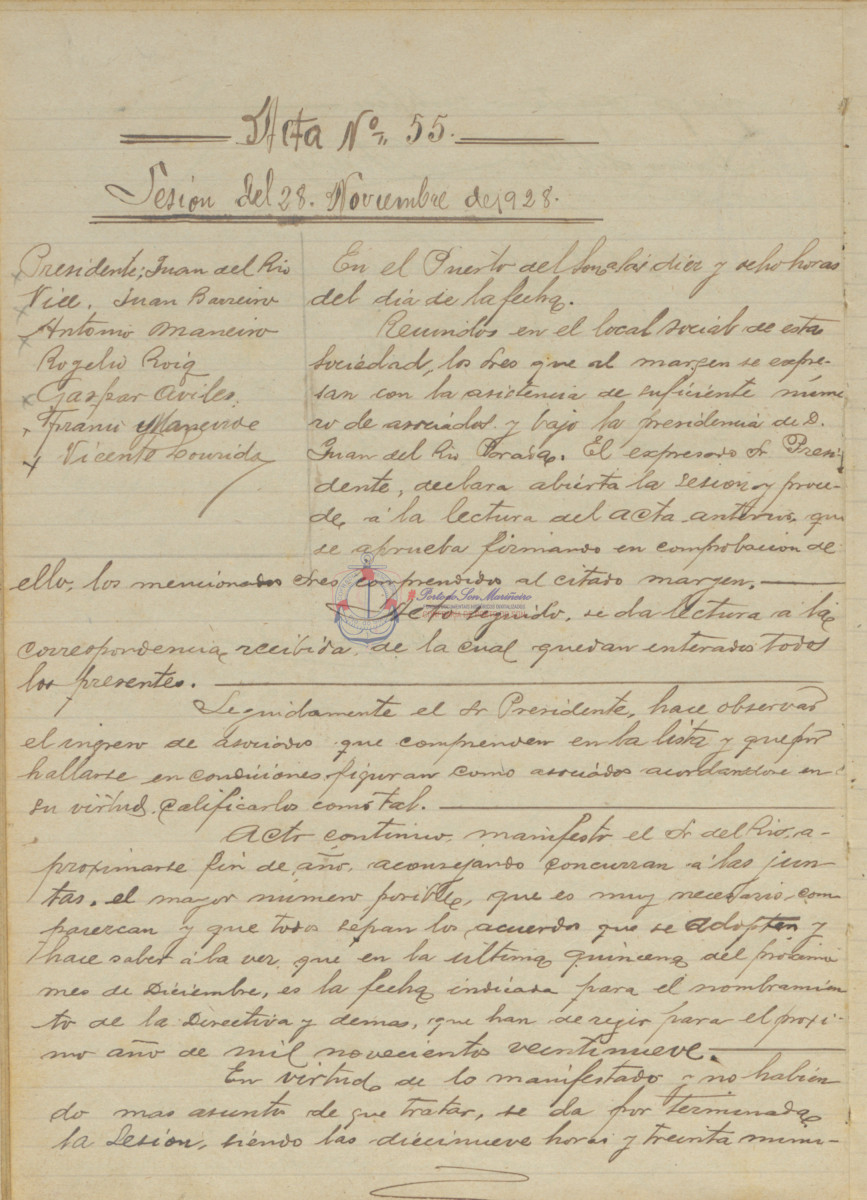 Acta Nº 55.
Sesión del 28. Noviembre de 1928.
Presidente; Juan del Rio
Vice. Juan Barreiro
Antonio Maneiro
Rogelio Roig
Gaspar Aviles
Franco Maneiro
Vicente Lourido
En el Puerto del Son, a las diez y ocho horas
del dia de la fecha.
Reunidos en el local social de esta
sociedad, los Sres que al margen se expre-
san con la asistencia de suficiente núme
ro de asociados y bajo la presidencia de D.
Juan del Rio Parada. El expresado Sr Presi
dente, declara abierta la sesion y proce-
de á la lectura del acta anterior que
se aprueba firmando en comprobacion de
ello, los mencionados Sres comprendidos al citado margen.
Porto de Son Mariñeiro
Acto seguido, se da lectura a la
correspondencia recibida, de la cual quedan enterados todos
los presentes.
Seguidamente el Sr Presidente, hace observar
el ingreso de asociados que comprenden en la lista y que por
hallarse en condiciones figuran como asociados acordandose en
su virtud calificarlos como tal.
Acto continuo, manifestó el Sr del Rio, a-
proximarse fin de año, aconsejando concurran á las jun-
tas, el mayor número posible, que es muy necesario com
parezcan y que todos sepan los acuerdos que se adopten y
hace saber á la vez que en la ultima quincena del próximo
mes de Diciembre, es la fecha indicada para el nombramien
to de la Directiva y demas, que han de regir para el proxi-
mo año de mil novecientos veintinueve.
En virtud de lo manifestado y no habien
do mas asunto de que tratar, se da por terminada
la Sesión, siendo las diecinueve horas y treinta minu-